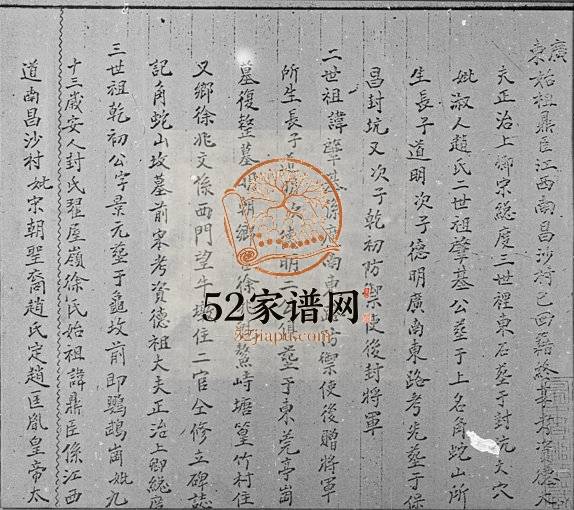 廣
東始祖鼎臣江西南昌沙村巳西籍終其考資德大
夫正治上卿宋総度三世裡東石塟于封坑文穴
妣淑人趙氏二世祖肇基公塟于上名角蛇山所
生長子道明次子德明廣南東路考光塟于保
昌封坑又次子乾初防禦使後封將軍
二世祖諱肇基係廣南東禦使後贈將軍
所生長子明二俱塟于東莞亭崗
墓復整墓朝鄉徐對鰲峙塘篁竹村住
又鄉徐兆文係西門望牛墩住二官仝修立碑誌
記角蛇山坟墓前宋考資德祖大夫正治上卿総度
三世祖乾初公字景元塟于龜坟前即鸚鵡崗妣九
十三歲安人封氏翟屋嶺徐氏始祖諱鼎臣係江西
道南昌沙村妣宋朝聖裔趙氏定趙匡胤皇帝太
52家谱网
52jiapu.com